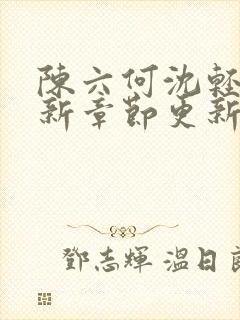 陳六何沈輕
新章節更新
鄧志輝 溫日良